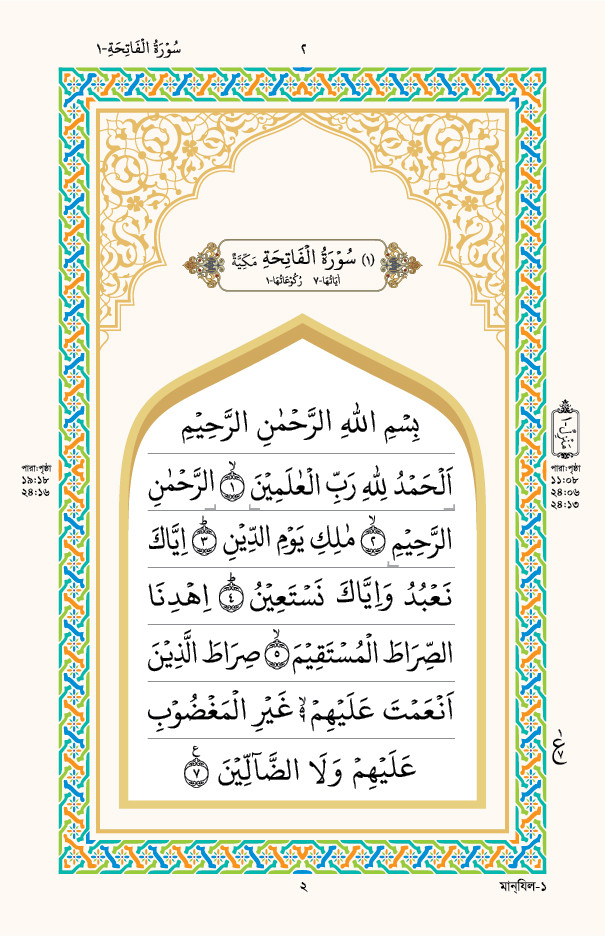 سُوْرَةُ الْفَاتِحَةِ-١
٢
(١) سُوْرَةُ الْفَاتِحَةِ مَكِّيَّةٌ
اٰيَاتُهَا-٧ رُكُوْعَاتُهَا-١
بِسْمِ اللهِ الرَّحْمٰنِ الرَّحِيْمِ
اَلْحَمْدُ لِلّٰهِ رَبِّ الْعٰلَمِيْنَ ۙ﴿١﴾ الرَّحْمٰنِ
الرَّحِيْمِ ۙ﴿٢﴾ مٰلِكِ يَوْمِ الدِّيْنِ ؕ﴿٣﴾ اِيَّاكَ
نَعْبُدُ وَاِيَّاكَ نَسْتَعِيْنُ ؕ﴿٤﴾ اِهْدِنَا
الصِّرَاطَ الْمُسْتَقِيْمَ ۙ﴿٥﴾ صِرَاطَ الَّذِيْنَ
اَنْعَمْتَ عَلَيْهِمْ ۙ۬ غَيْرِ الْمَغْضُوْبِ
عَلَيْهِمْ وَلَا الضَّآلِّيْنَ ﴿٧﴾ ع
পারা:পৃষ্ঠা
১৯:১৮
২৪:১৬
مَنْزِلٌ-١
পারা:পৃষ্ঠা
১১:০৮
২৪:০৬
২৪:১৩
ع
٧
২
মান্‌যিল-১